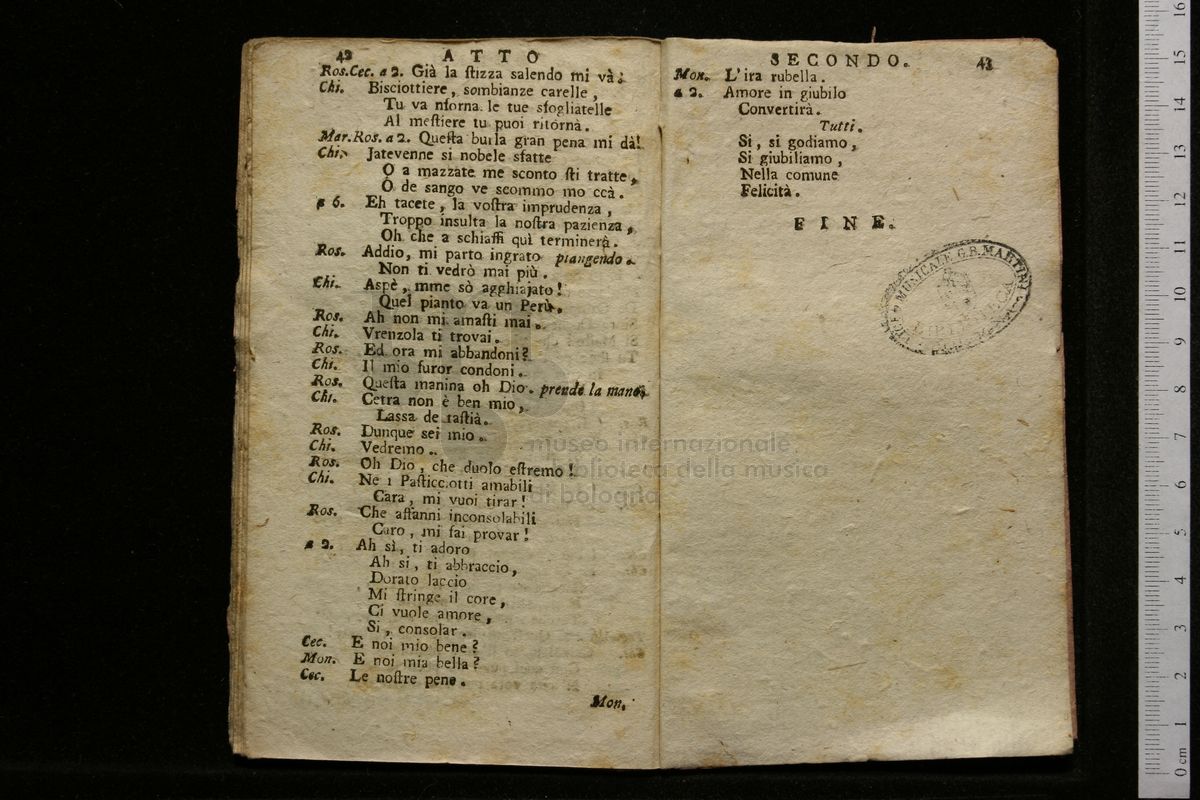 42 ATTO
Ros.Cec. a 2. Già la ſtizza salendo mi và.
Chi. Bisciottiere, sombianze carelle,
Tu va nforna le tue sfogliatelle
Al meſtiere tu puoi ritornà.
Mar.Ros. a 2. Queſta burla gran pena mi dà!
Chi. Jatevenne si nobele sfatte
O a mazzate me sconto ſti tratte,
O de sango ve scommo mo ccà.
a 6. Eh tacete, la voſtra imprudenza,
Troppo insulta la noſtra pazienza,
Oh che a schiaffi quì terminerà.
Ros. Addio, mi parto ingrato piangendo.
Non ti vedrò mai più.
Chi. Aspè, mme sò agghiajato!
Quel pianto va un Perù.
Ros. Ah non mi amaſti mai.
Chi. Vrenzola ti trovai.
Ros. Ed ora mi abbandoni?
Chi. Il mio furor condoni.
Ros. Queſta manina oh Dio. prende la mano.
Chi. Cetra non è ben mio,
Lassa de raſtià.
Ros. Dunque sei mio.
Chi. Vedremo.
Ros. Oh Dio, che duolo eſtremo!
Chi. Ne i Paſticciotti amabili
Cara, mi vuoi tirar!
Ros. Che affanni inconsolabili
Caro, mi fai provar!
a 2. Ah sì, ti adoro
Ah si, ti abbraccio,
Dorato laccio
Mi ſtringe il core,
Ci vuole amore,
Si, consolar.
Cec. E noi mio bene?
Mon. E noi mia bella?
Cec. Le noſtre pene.
Mon.
SECONDO. 43
Mon. L'ira rubella.
a 2. Amore in giubilo
Convertirà.
Tutti.
Si, si godiamo,
Si giubiliamo,
Nella comune
Felicità.
FINE.
MUSICALE G.B. MARTINI
museo internazionale
biblioteca della musica
di bologna
0 cm 1 2 3 4 5 6 7 8 9 10 11 12 13 14 15 16